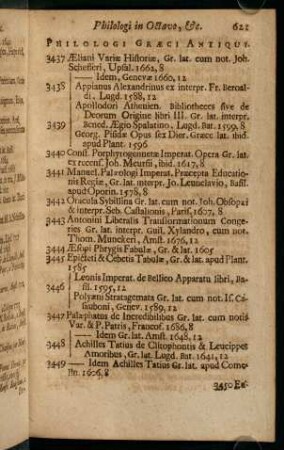 Philologi in Octavo, &c. 621
PHILOLOGI GRÆCI ANTIQUI.
3437 Æliani Variæ Historiæ, Gr. lat. cum not. Joh.
Schefferi, Upsal. 1662, 8
— Idem, Genevæ 1660, 12
3438 Appianus Alexandrinus ex interpr. Fr. Beroal-
di. Lugd. 1588, 12
Apollodori Athenien. Bibliotheces sive de
Deorum Origine libri III. Gr. lat. interpr.
3439 Bened. Ægio Spalatino, Lugd. Bat. 1599, 8
Georg. Pisidæ Opus sex Dier. Græc. lat. ibid.
apud Plant. 1596
3440 Const. Porphyrogennetæ Imperat. Opera Gr. lat.
ex recens. Joh. Meursii, ibid. 1617, 8
3441 Manuel. Palæologi Imperat. Præcepta Educatio-
nis Regiæ, Gr. lat. interpr. Jo. Leunclavio, Basil.
apud Oporin. 1578, 8
3442 Oracula Sibyllina Gr. lat. cum not. Joh. Obsopæi
& interpr. Seb. Castalionis, Paris, 1607, 8
3443 Antonini Liberalis Transformationum Conge-
ries Gr. lat. interpr. Guil. Xylandro, cum not.
Thom. Munckeri, Amst. 1676, 12
3444 Æsopi Phrygis Fabulæ, Gr. & lat. 1605
3445 Epicteti & Cebetis Tabulæ, Gr. & lat. apud Plant.
1585
Leonis Imperat. de Bellico Apparatu libri, Ba-
3446 sil. 1595, 12
Polyæni Stratagemata Gr. lat. cum not. Is. Ca-
sauboni, Genev. 1589, 12
3447 Palæphatus de Incredibilibus Gr. lat. cum notis
Var. & P. Patris, Francof. 1686, 8
— Idem Gr. lat. Amst. 1648, 12
3448 Achilles Tatius de Clitophontis & Leucippes
Amoribus, Gr. lat. Lugd. Bat. 1641, 12
3449 — Idem Achilles Tatius Gr. lat. apud Come-
lin. 1606, 8
3450 Ex-